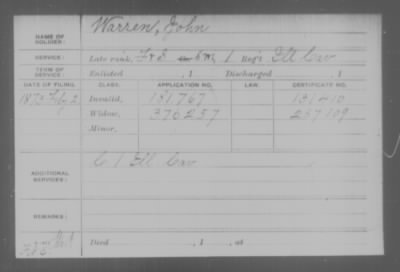 NAME OF SOLDIER: Warren, John
SERVICE: Late rank, F & S Reg't Ill Cav
TERM OF SERVICE: Enlisted , 1 Discharged , 1
DATE OF FILING. CLASS. APPLICATION NO. LAW. CERTIFICATE NO.
1873 Feby 2 Invalid, 181.767
Widow, 376257 257109
Minor,
ADDITIONAL SERVICES: C 1 Ill Cav
REMARKS:
Died , 1 , at